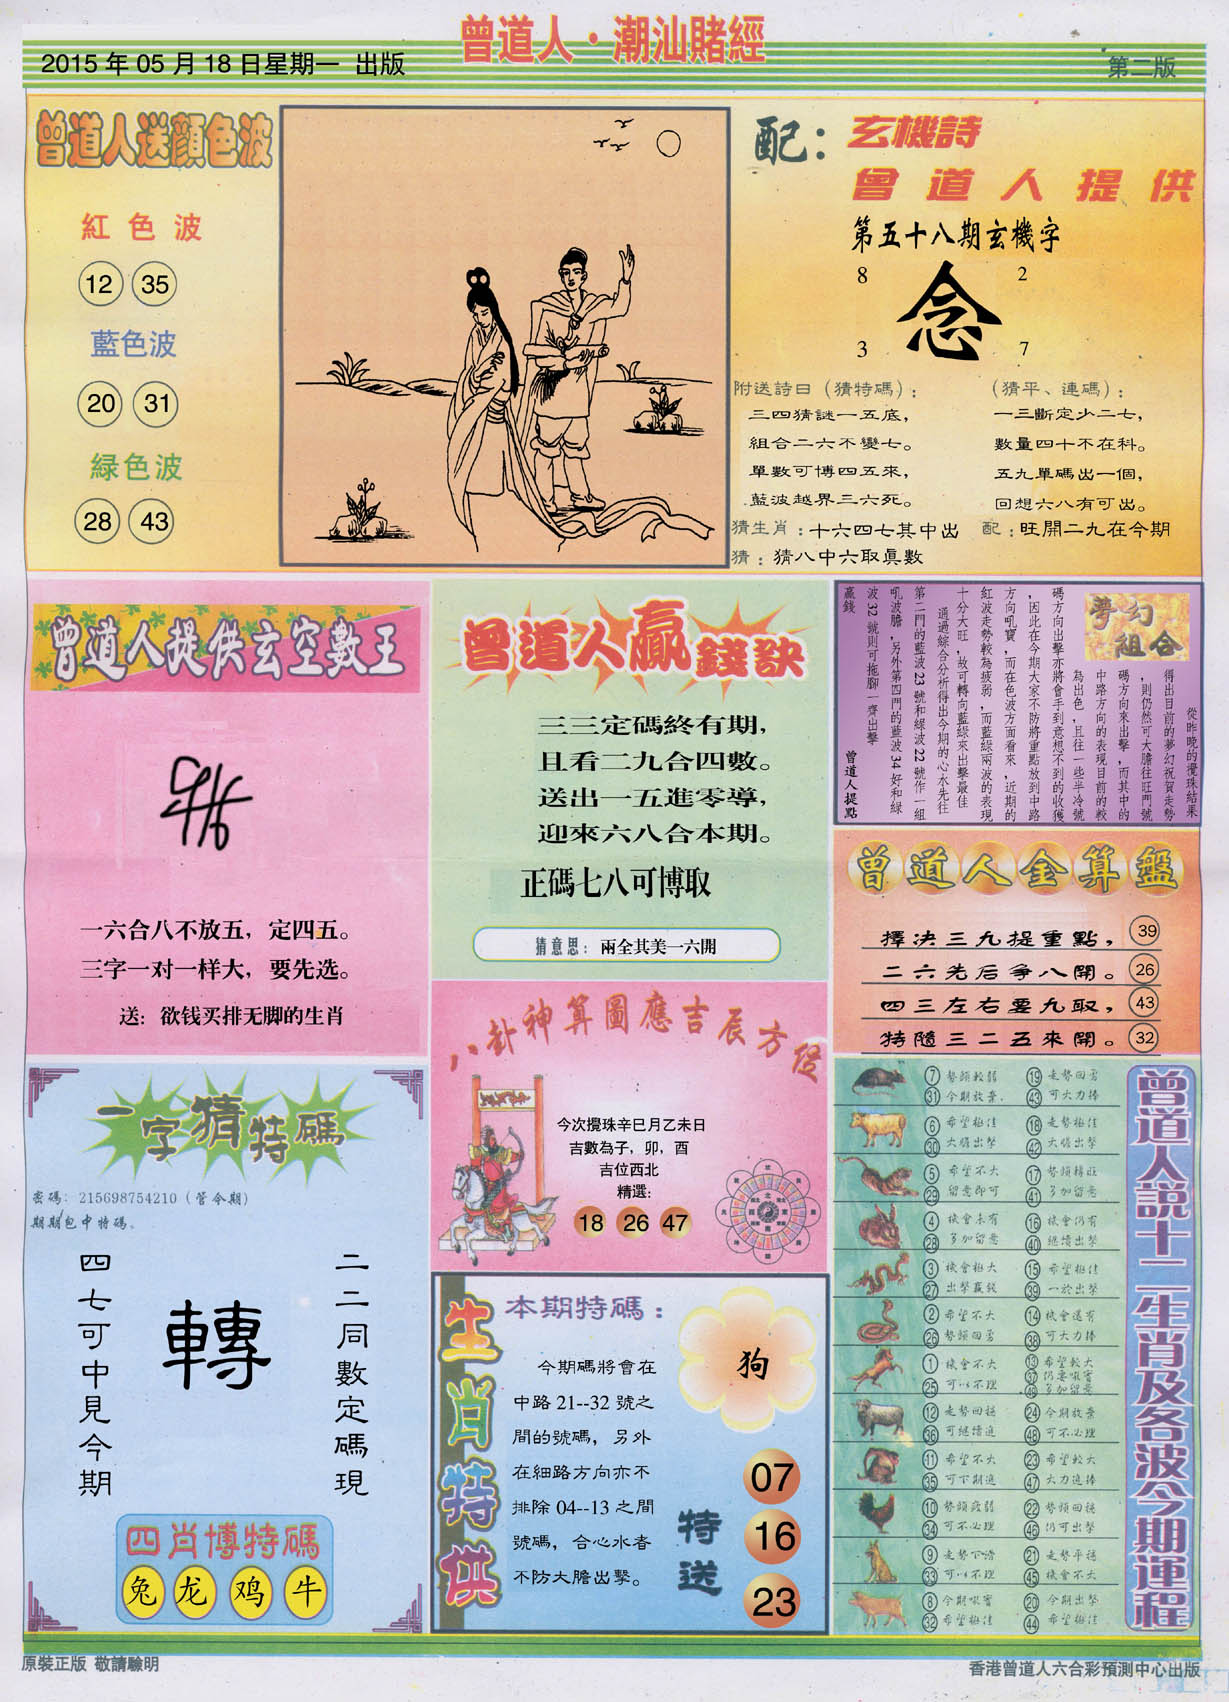 曾道人·潮汕賭經
2015 年 05 月 18 日星期一 出版
第二版
曾道人送顏色波
紅色波
12 35
藍色波
20 31
緑色波
28 43
配：玄機詩
曾道人提供
第五十八期玄機字
8 2
念
3 7
附送詩曰（猜特碼）：
三四猜謎一五底，
組合二六不變七。
單數可博四五來，
藍波越界三六死。
（猜平、連碼）：
一三斷定少二七，
數量四十不在科。
五九單碼出一個，
回想六八有可出。
猜生肖：十六四七其中出
配：旺開二九在今期
猜：猜八中六取眞數
曾道人提供玄空數王
一六合八不放五，定四五。
三字一对一样大，要先选。
送：欲钱买排无脚的生肖
曾道人贏錢訣
三三定碼終有期，
且看二九合四數。
送出一五進零導，
迎來六八合本期。
正碼七八可博取
猜意思：兩全其美一六開
夢幻組合
從昨晚的攪珠結果
得出目前的夢幻祝賀走勢
，則仍然可大膽往旺門號
碼方向來出擊，而其中的
中路方向的表現目前的較
為出色，且往一些半冷號
碼方向出擊亦將會手到意想不到的收獲
，因此在今期大家不防將重點放到中路
方向吼寶，而在色波方面看來，近期的
紅波走勢較為疲弱，而藍綠兩波的表現
十分大旺，故可轉向藍綠來出擊最佳
通過綜合分析得出今期的心水先往
第二門的藍波 23 號和綠波 22 號作一組
吼波膽，另外第四門的藍波 34 好和綠
波 32 號則可拖腳一齊出擊
贏錢
曾道人提點
曾道人金算盤
擇決三九提重點， 39
二六先后爭八開。 26
四三左右要九取， 43
特隨三二五來開。 32
八卦神算圖應吉辰方位
今次攪珠辛巳月乙未日
吉數為子，卯，酉
吉位西北
精選:
18 26 47
一字猜特碼
密碼：215698754210（管今期）
期期包中特碼。
二二同數定碼現
轉
四七可中見今期
四肖博特碼
兔 龙 鸡 牛
生肖特供
本期特碼：
狗
今期碼將會在
中路 21--32 號之
間的號碼，另外
在細路方向亦不
排除 04--13 之間
號碼，合心水者
不防大膽出擊。
特送
07
16
23
曾道人說十二生肖及各波今期運程
7 勢頭較弱 19 走勢回勇
31 今期放棄 43 可大力捧
6 希望極佳 18 走勢極佳
30 大膽出擊 42 大膽出擊
5 希望不大 17 勢頭轉旺
29 留意即可 41 多加留意
4 機會未有 16 機會仍有
28 多加留意 40 繼續出擊
3 機會極大 15 希望極佳
27 出擊贏錢 39 一於出擊
2 希望不大 14 機會還有
26 勢頭回勇 38 可大力捧
1 機會不大 13 希望較大
25 可以不理 37 仍要吸寶
49 多加留意
12 走勢回穩 24 今期放棄
36 可繼續追 48 可不必理
11 希望不大 23 希望較大
35 可下期追 47 大力追捧
10 勢頭疲弱 22 勢頭回穩
34 可不必理 46 仍可出擊
9 走勢下滑 21 走勢平穩
33 可以不理 45 機會不大
8 今期吸寶 20 今期出擊
32 希望極佳 44 希望極佳
原裝正版 敬請驗明
香港曾道人六合彩預測中心出版